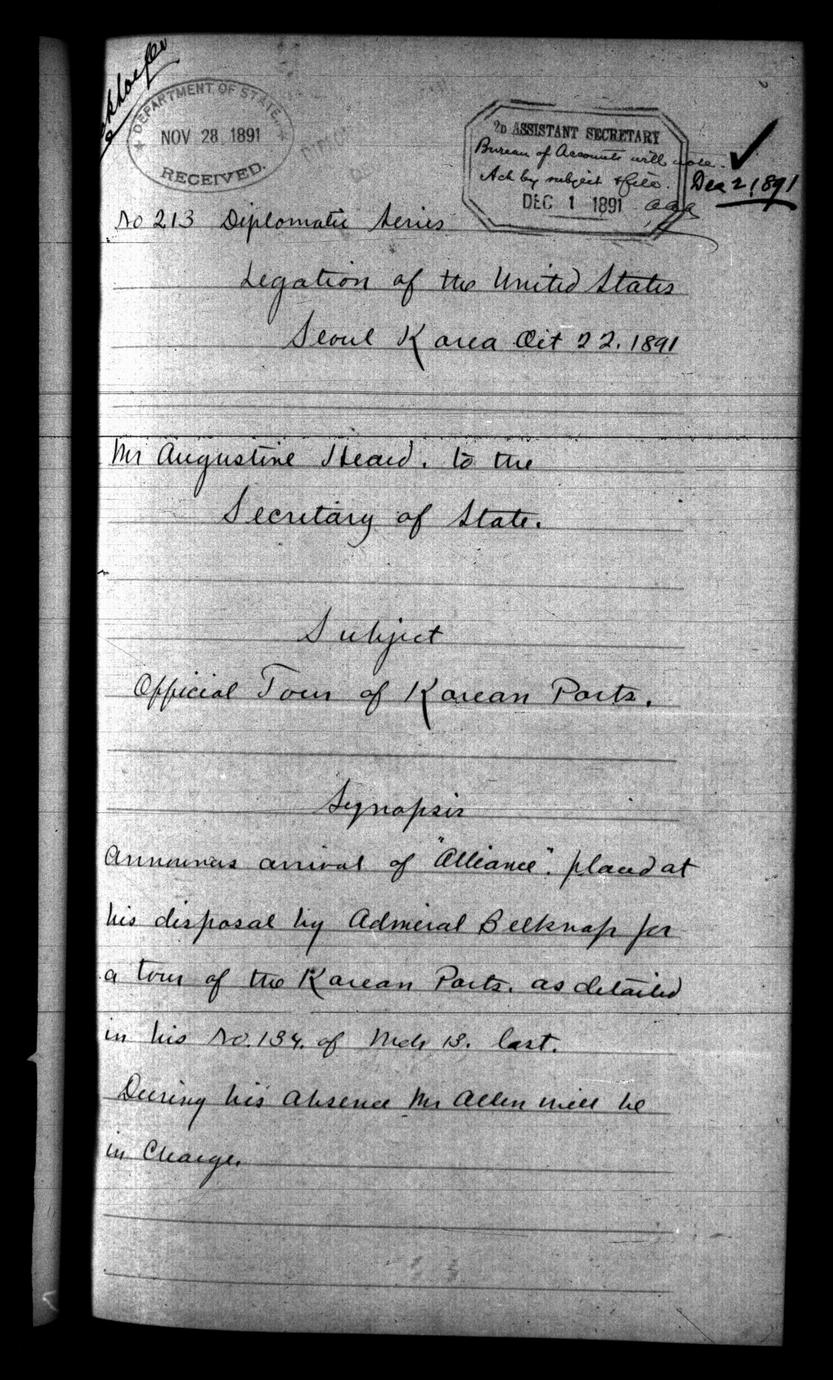 DEPARTMENT OF STATE,
NOV 28 1891
RECEIVED.
2D ASSISTANT SECRETARY
Bureau of Accounts will note.
Ack by subject & file.
DEC 1 1891
Dec 2, 1891
No 213 Diplomatic Series
Legation of the United States
Seoul Korea Oct 22. 1891
Mr Augustine Heard. to the
Secretary of State.
Subject
Official Tour of Korean Ports.
Synopsis
Announces arrival of "Alliance". placed at
his disposal by Admiral Belknap for
a tour of the Korean Ports. as detailed
in his No. 134. of Mch 13. last.
During his absence Mr Allen will be
in Charge.